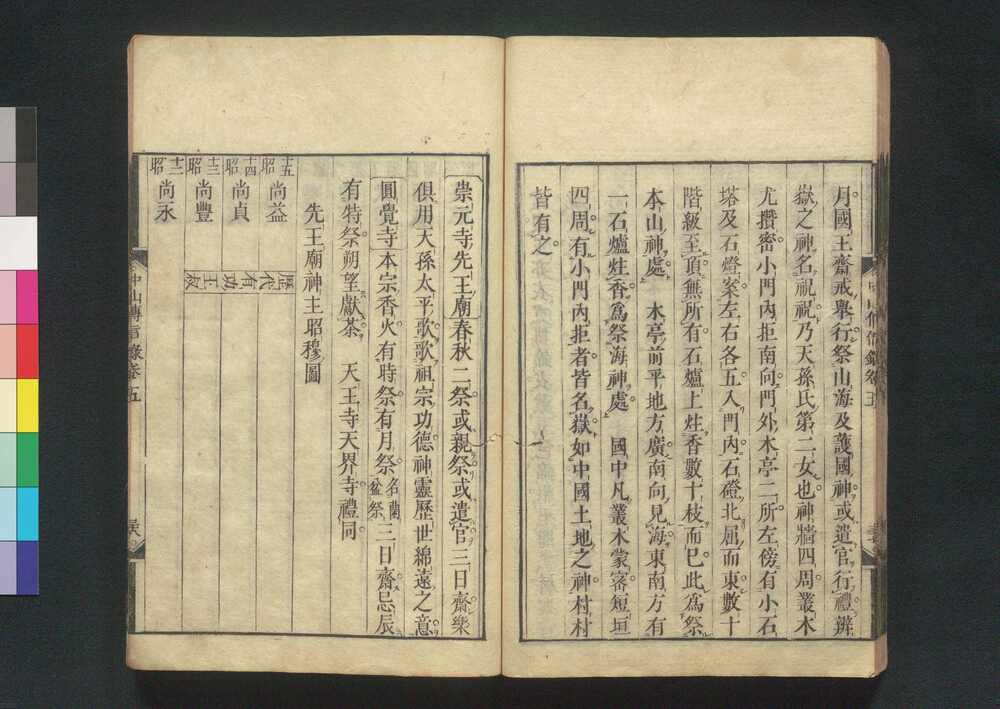 月國王齋戒舉行祭山海及護國神或遣官行禮辨
嶽之神名祝祝乃天孫氏第二女也神牆四周叢木
尤攢密小門內拒南向門外木亭二所左傍有小石
塔及石燈案左右各五入門內石磴北屈而東數十
階級至頂無所有石爐上炷香數十枝而已此爲祭
本山神處　水亭前平地方廣南向見海東南方有
一石爐炷香爲祭海神處　國中凡叢木蒙密短垣
四周有小門內拒者皆名嶽如中國土地之神村村
皆有之
崇元寺先王廟春秋二祭或親祭或遣官三日齋樂
俱用天孫太平歌歌祖宗功德神靈歷世綿遠之意
圓覺寺本宗香火有時祭有月祭名蘭盆祭三日齋忌辰
有特祭朔望獻茶　天王寺天界寺禮同
先王廟神主昭穆圖
十五昭　尚益
十四昭　尚貞
十三昭　尚豐
十二昭　尚永
歷代有功王叔
中山傳信錄卷五